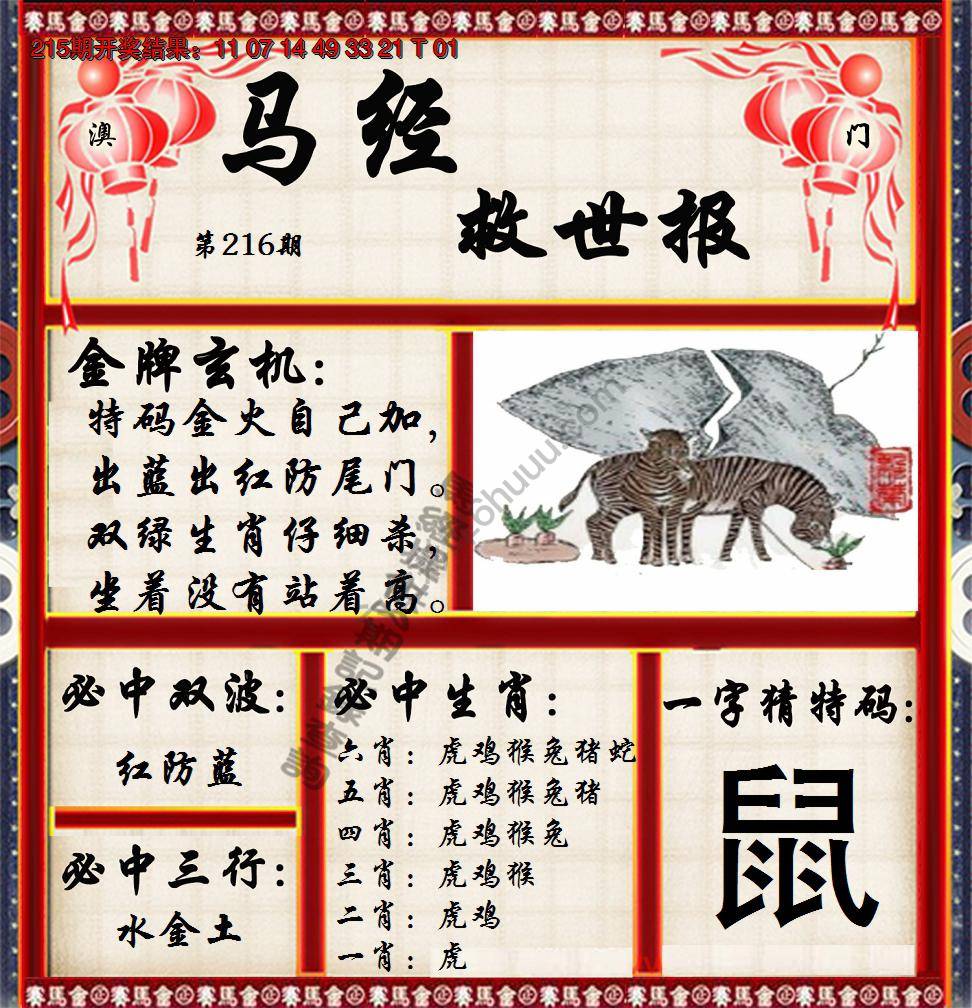 215期开奖结果：11 07 14 49 33 21 T 01
澳
门
马经
救世报
第216期
金牌玄机：
特码金火自己加，
出蓝出红防尾门。
双绿生肖仔细杀，
坐着没有站着高。
必中双波：
红防蓝
必中三行：
水金土
必中生肖：
六肖：虎鸡猴兔猪蛇
五肖：虎鸡猴兔猪
四肖：虎鸡猴兔
三肖：虎鸡猴
二肖：虎鸡
一肖：虎
一字猜特码：
鼠